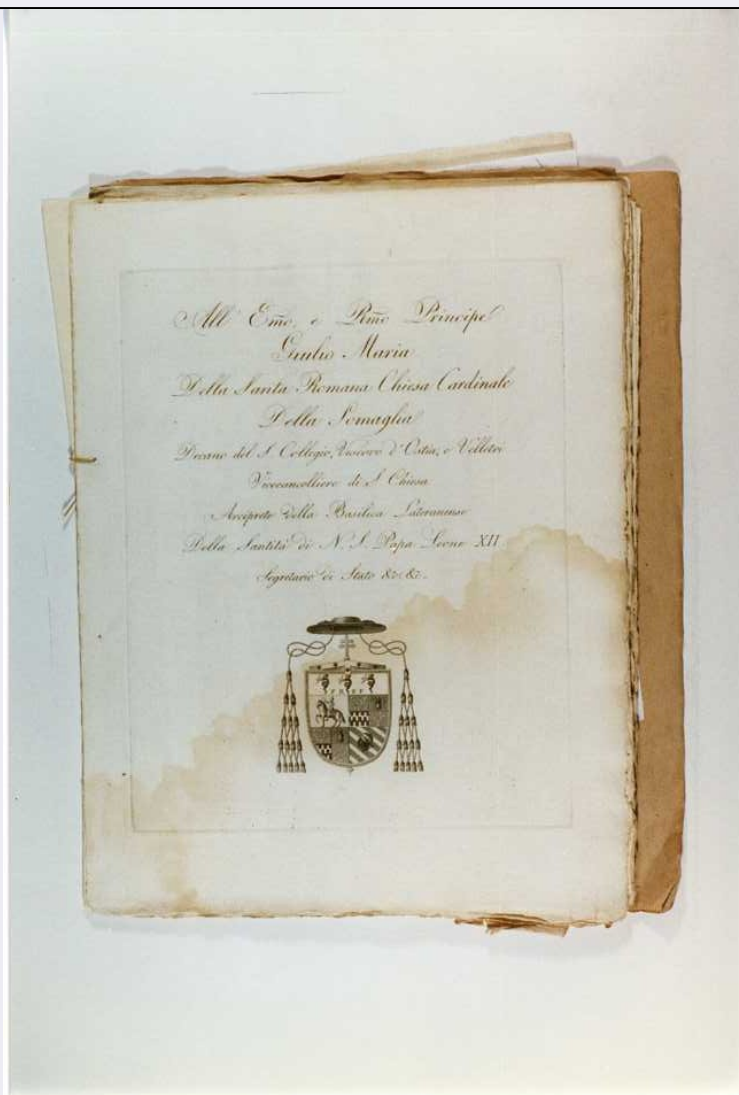 All' Emo. e Rmo Principe
Giulio Maria
Della Santa Romana Chiesa Cardinale
Della Somaglia
Decano del S. Collegio, Vescovo d'Ostia, e Velletri
Vicecancelliere di S. Chiesa
Arciprete della Basilica Lateranense
Della Santità di N. S. Papa Leone XII
Segretario di Stato &c. &c.